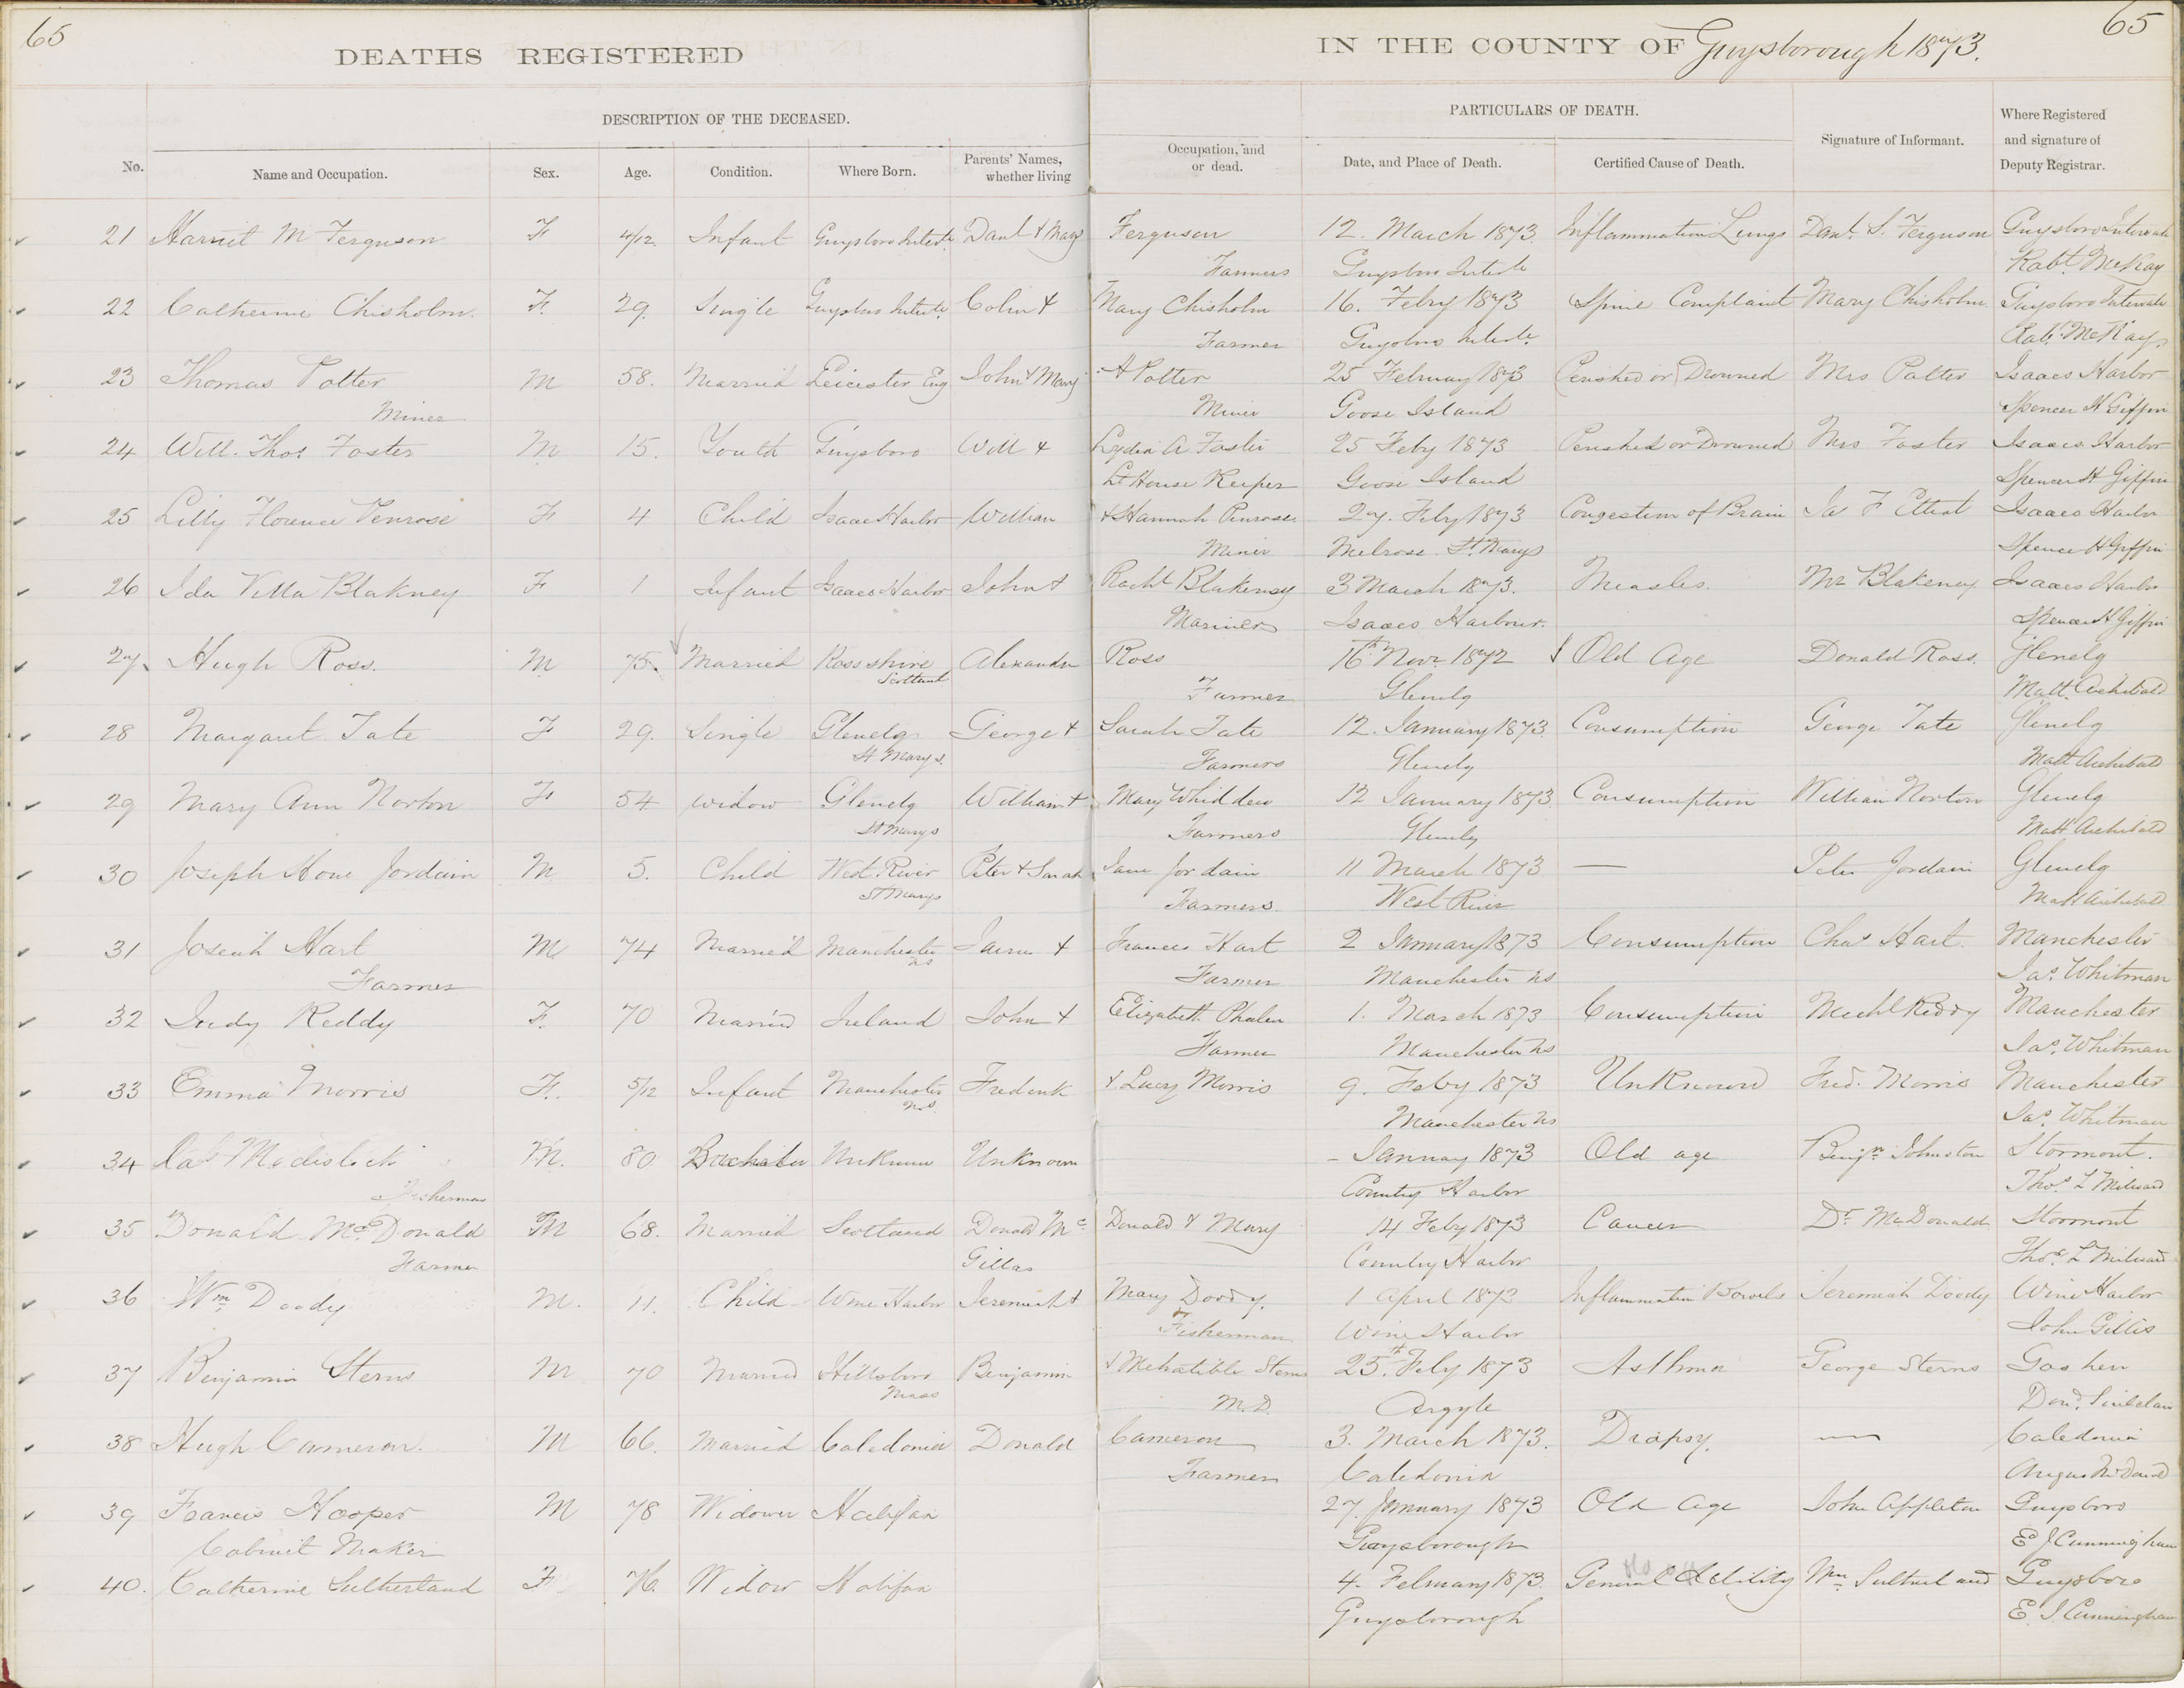 65
65
DEATHS REGISTERED IN THE COUNTY OF Guysborough 1873.
DESCRIPTION OF THE DECEASED. PARTICULARS OF DEATH.
No. Name and Occupation. Sex. Age. Condition. Where Born. Parents' Names, whether living Occupation, and or dead. Date, and Place of Death. Certified Cause of Death. Signature of Informant. Where Registered and signature of Deputy Registrar.
21 Harriet M Ferguson F 4/12 Infant Guysboro Intervale Danl & Mary Ferguson 12. March 1873. Inflammation Lungs Danl. S. Ferguson Guysboro Intervale
Farmers Guysboro Robt. McKay
22 Catherine Chisholm. F. 29. Single Guysboro Colin & Mary Chisholm 16. Febry 1873 Spine Complaint Mary Chisholm Guysboro Intervale
Farmer Guysboro Robt. McKay.
23 Thomas Potter M 58. Married Leicester Eng John & Mary A Potter 25 February 1873 Perished or Drowned Mrs Potter Isaacs Harbor
Miner Miner Goose Island Spencer H Giffin
24 Will. Thos. Foster M 15. Youth Guysboro Will & Lydia A Foster 25 Feby 1873 Perished or Drowned Mrs Foster Isaacs Harbor
Lt House Keeper Goose Island Spencer H Giffin
25 Lilly Florence Penrose F 4 Child Isaacs Harbor William & Hannah Penrose. 27. Feby 1873 Congestion of Brain F Isaacs Harbor
Miner Melrose St. Marys Spencer H Giffin
26 Ida Villa Blakney F 1 Infant Isaacs Harbor John & Rachl Blakeney 3 March 1873. Measles. Mr Blakeney Isaacs Harbor
Mariner Isaacs Harbour. Spencer H Giffin
27. Hugh Ross. M 75. Married Rossshire Alexander Ross 16th Novr 1872 Old Age Donald Ross. Glenelg
Scotland Farmer Glenelg Matt. Archibald
28 Margaret Tate F 29. Single Glenelg George & Sarah Tate 12. January 1873. Consumption George Tate Glenelg
St Marys. Farmers Glenelg Matt Archibald
29 Mary Ann Norton F 54 widow Glenelg William & Mary Whidden 12 January 1873 Consumption William Norton Glenelg
St Marys Farmers Glenelg Matt Archibald
30 Joseph Howe Jordain M 5. Child West River Peter & Sarah Jane Jordain 11 March 1873 — Peter Jordain Glenelg
St Marys Farmers. West River Matt Archibald
31 Josiah Hart M 74 Married Manchester Jairus & Frances Hart 2 January 1873 Consumption Chas Hart. Manchester
Farmer NS Farmer Manchester NS Jas. Whitman
32 Judy Reddy F. 70 Married Ireland John & Elizabeth Phalen 1. March 1873 Consumption Michl Reddy Manchester
Farmer Manchester NS Jas. Whitman
33 Emma Morris F. 5/12 Infant Manchester Frederick & Lucy Morris 9. Feby 1873 Unknown Fred. Morris Manchester
N.S. Manchester NS Jas. Whitman
34 M. 80 Bachelor Unknown Unknown - January 1873 Old age Benjn Johnston Stormont.
Fisherman Country Harbor Thos.
35 Donald McDonald M 68. Married Scotland Donald Mc Donald & Mary 14 Feby 1873 Cancer Dr McDonald Stormont
Farmer Gillas Country Harbor Thos.
36 Wm Doody M. 11. Child Wine Harbor Jeremiah & Mary Doody. 1 April 1873 Inflammation Bowels Jeremiah Doody Wine Harbor
Fisherman Wine Harbor John Gillis
37 Benjamin Sterns M 70 Married Hillsboro Benjamin & Mehatible Sterns 25th Feby 1873 Asthma George Sterns Goshen
Mass M.D. Argyle Dond. Sinclair
38 Hugh Cameron. M 66. Married Caledonia Donald Cameron 3. March 1873. Dropsy. — Caledonia
Farmer Caledonia Angus
39 Francis Hooper M 78 Widower Halifax 27 January 1873 Old Age John Appleton Guysboro
Cabinet Maker Guysborough E J Cunningham
40. Catherine Sutherland F. 76. Widow Halifax 4. February 1873. General Debility Wm Sutherland Guysboro
Guysborough E. J. Cunningham